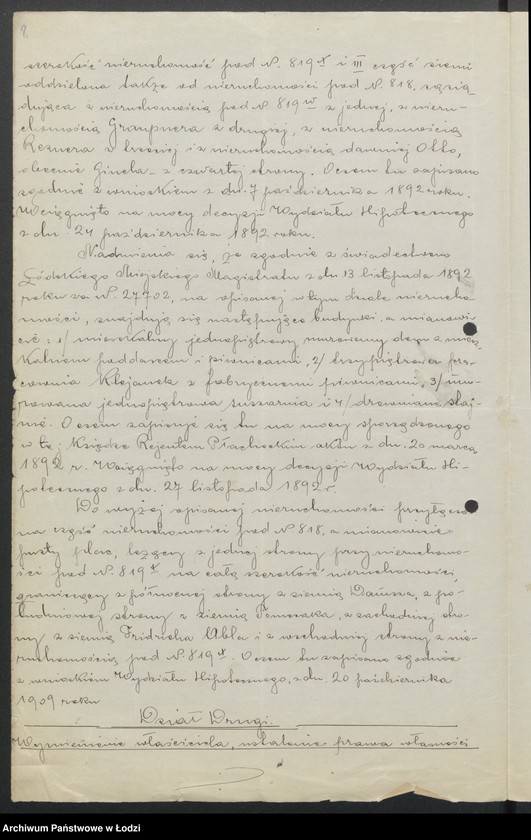 8
szerokość nieruchomość pod N. 819 i III część ziemi
oddzielona także od nieruchomości pod N. 818, sąsia-
dująca z nieruchomością pod N 819 z jednej, z nieru-
chomością Graupnera z drugiej, z nieruchomością
Reznera z trzeciej i z nieruchomością dawniej Otto,
obecnie z czwartej strony. O czem tu zapisano
zgodnie z wnioskiem z dn. 7 października 1892 roku.
Wciągnięto na mocy decyzji Wydziału Hipotecznego
z dn. 24 października 1892 roku.
Nadmienia się, że zgodnie z świadectwem
Łódzkiego Miejskiego Magistratu z dn 13 listopada 1892
roku za N. 27702, na opisanej w tym dziale nierucho-
mości, znajdują się następujące budynki, a mianowi-
cie: 1/ mieszkalny jednopiętrowy murowany dom z miesz-
kalnem poddaszem i piwnicami, 2/ trzypiętrowa pra-
cownia z fabrycznemi piwnicami, 3/ mu-
rowana jednopiętrowa suszarnia i 4/ drewniane staj-
nie. O czem zapisuje się tu na mocy sporządzonego
w tej Księdze Rejentem Płacheckim aktu z dn. 20 marca
1892 r. Wciągnięto na mocy decyzji Wydziału Hi-
potecznego z dn. 27 listopada 1892 r.
Do wyżej opisanej nieruchomości przyłączo-
na część nieruchomości pod N 818, a mianowicie
pusty plac, leżący z jednej strony przy nieruchomo-
ści pod N. 819 na całą szerokość nieruchomości,
graniczący z północnej strony z ziemią z po-
łudniowej strony z ziemią z zachodniej stro-
ny z ziemią Fridricha Abla i z wschodniej strony z nie-
ruchomością pod N. 819. O czem tu zapisano zgodnie
z wnioskiem Wydziału Hipotecznego, z dn. 20 października
1909 roku
Dział Drugi.
Wymienienie właściciela, ustalenie prawa własności
Archiwum Państwowe w Łodzi